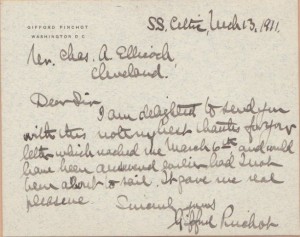 GIFFORD PINCHOT
WASHINGTON D C
SS. Celtic, March 13, 1911.
Mr. Chas. A. Ellicock
Cleveland.
Dear Sir
I am delighted to send you
with this note my best thanks for your
letter which reached me March 6th and would
have been answered earlier had I not
been about to sail. It gave me real
pleasure.
Sincerely yours
Gifford Pinchot